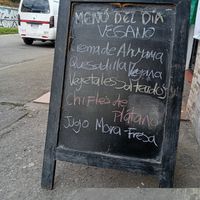 MENÚ DEL DÍA
VEGANO
Crema de Ahuyama
Quesadilla Vegana
Vegetales Salteados
Chifles de
Plátano
Jugo Mora-Fresa